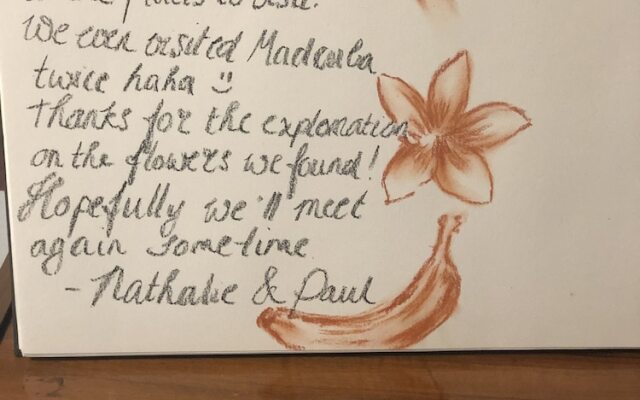 places to visit.
We even visited
twice haha :)
Thanks for the explanation
on the flowers we found!
Hopefully we'll meet
again sometime
- Nathalie & Paul